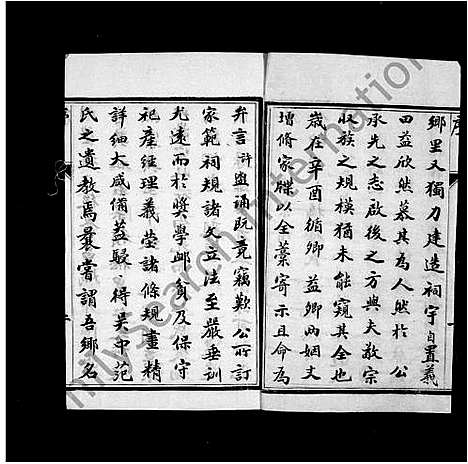 序
鄉里又獨力建造祠宇自置義
田益欣然慕其為人然於 公
承先之志啟後之方與夫敬宗
收族之規模猶未能窺其全也
歲在辛酉循卿 益卿两姻丈
增脩家牒以全藁寄示且命為
弁言 盥誦既竟竊歎 公所訂
家範祠規諸文立法至嚴垂訓
尤遠而於奬學邮貧及保守
祀產經理義塋諸條規畫精
詳細大咸備葢駸 得吳中范
氏之遺教焉曩嘗謂吾鄉名